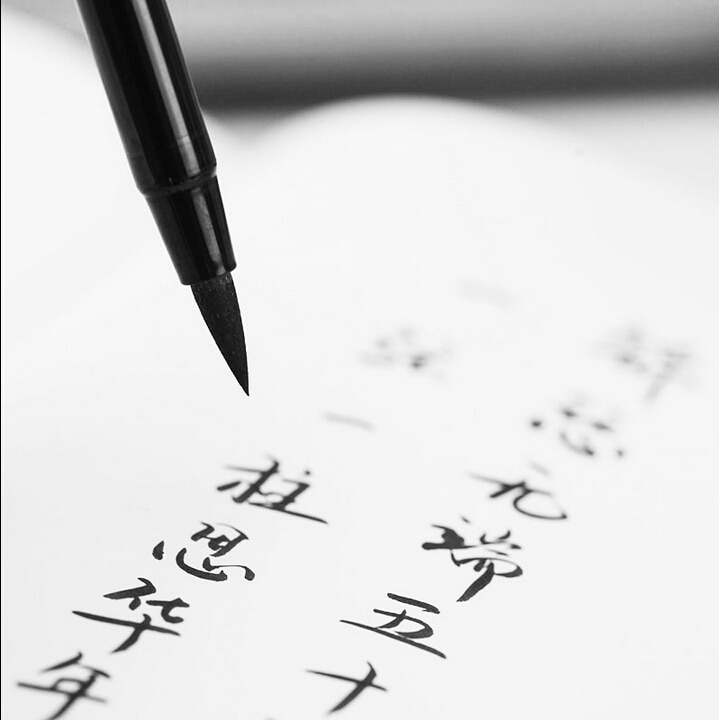 无端五十
一柱思华年